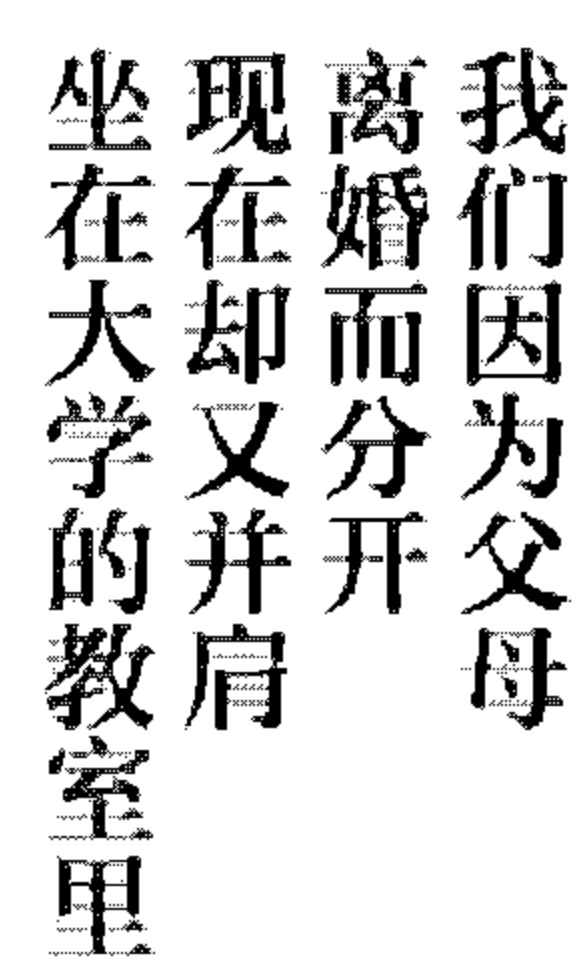 我们因为父母
离婚而分开
现在却又并肩
坐在大学的教室里